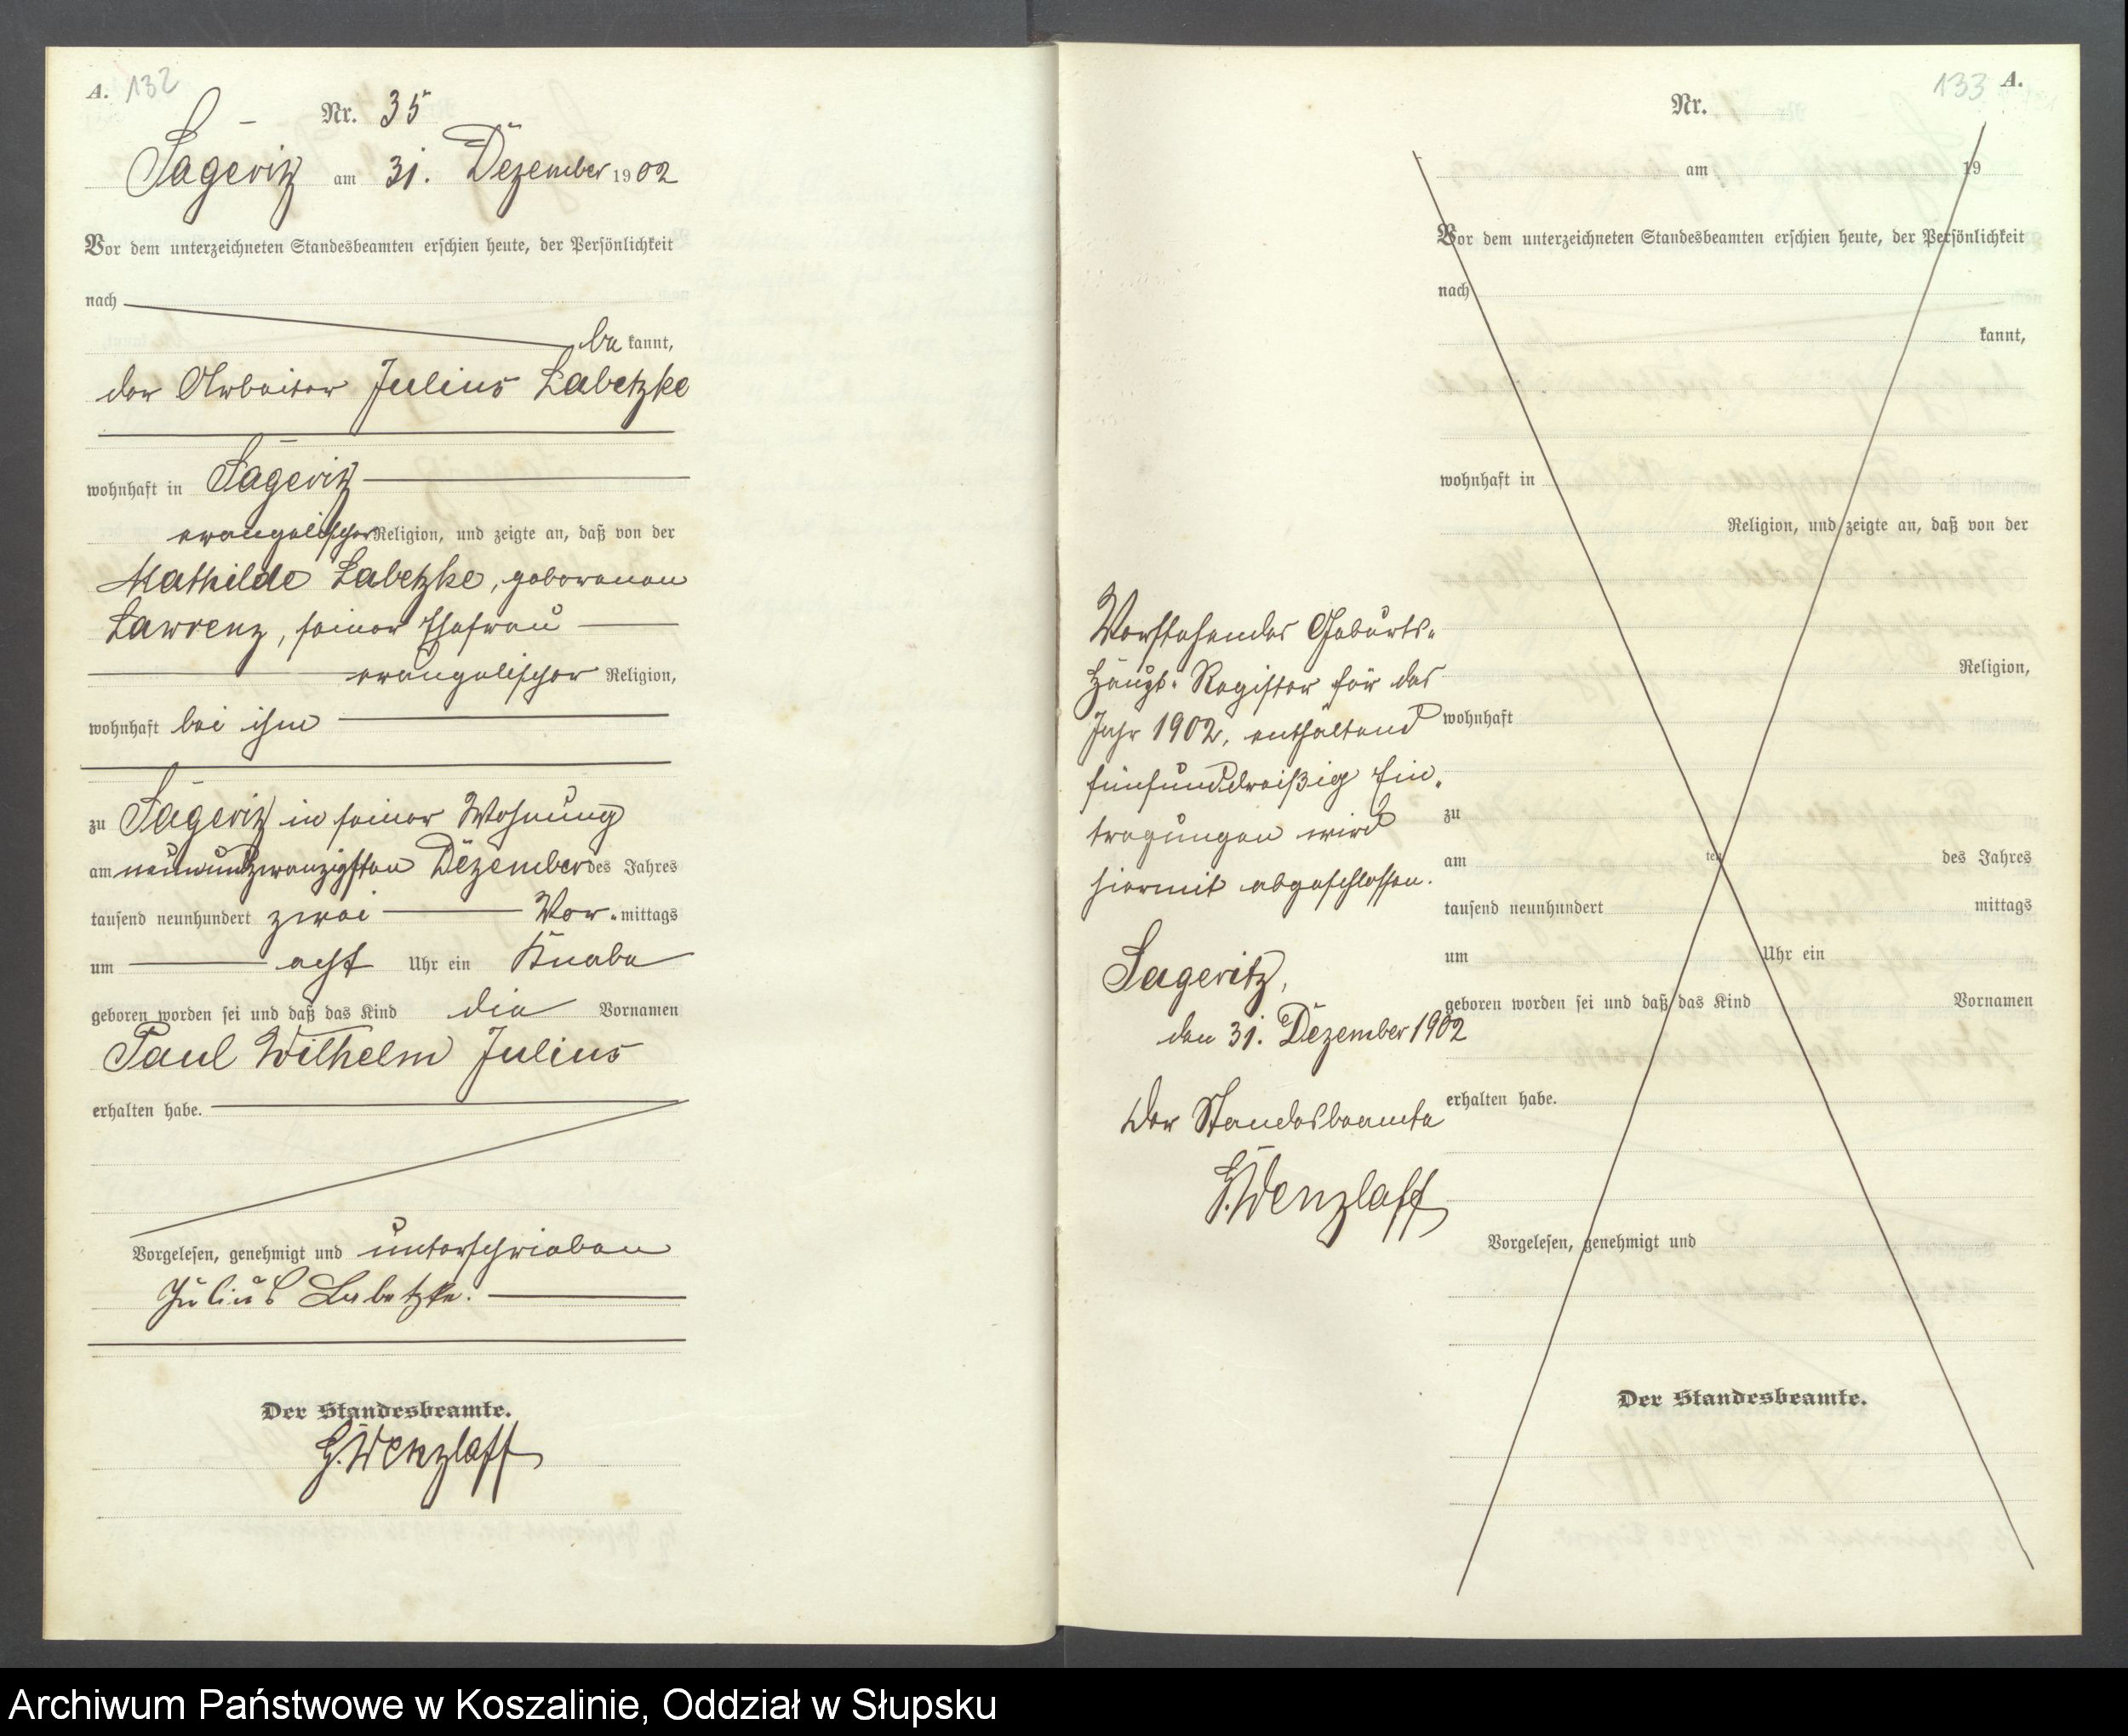 A. 132
Nr. 35
Sageritz am 31. Dezember 1902
Vor dem unterzeichneten Standesbeamten erschien heute, der Persönlichkeit
nach
be kannt,
der Arbeiter Julius Labetzke
wohnhaft in Sageritz
evangelischer Religion, und zeigte an, daß von der
Mathilde Labetzke, geborenen
Lawrenz, seiner Ehefrau
evangelischer Religion,
wohnhaft bei ihm
zu Sageritz in seiner Wohnung
am neunundzwanzigsten Dezember des Jahres
tausend neunhundert zwei Vor-mittags
um acht Uhr ein Knabe
geboren worden sei und daß das Kind die Vornamen
Paul Wilhelm Julius
erhalten habe.
Vorgelesen, genehmigt und unterschrieben
Julius Labetzke.
Der Standesbeamte.
G. Wenzlaff
133 A.
Nr.
am 19
Vor dem unterzeichneten Standesbeamten erschien heute, der Persönlichkeit
nach
kannt,
wohnhaft in
Religion, und zeigte an, daß von der
Religion,
wohnhaft
zu
am ten des Jahres
tausend neunhundert mittags
um Uhr ein
geboren worden sei und daß das Kind Vornamen
erhalten habe.
Vorgelesen, genehmigt und
Der Standesbeamte.
Vorstehendes Geburts-
Haupt-Register für das
Jahr 1902, enthaltend
fünfunddreißig Ein-
tragungen wird
hiermit abgeschlossen.
Sageritz,
den 31. Dezember 1902
Der Standesbeamte
G. Wenzlaff
Archiwum Państwowe w Koszalinie, Oddział w Słupsku